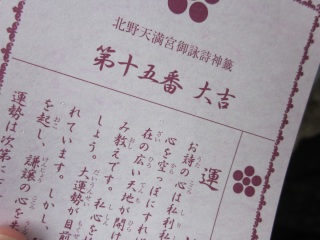 北野天満宮御詠詩神籤
第十五番 大吉
運
お詩の心は私利私
心を空っぽにすれ
在の広い天地が開け
み教えです。
しょう。私心を
大運勢が目前
れています。しかし、
を起し、謙譲の心を
運勢は次第に